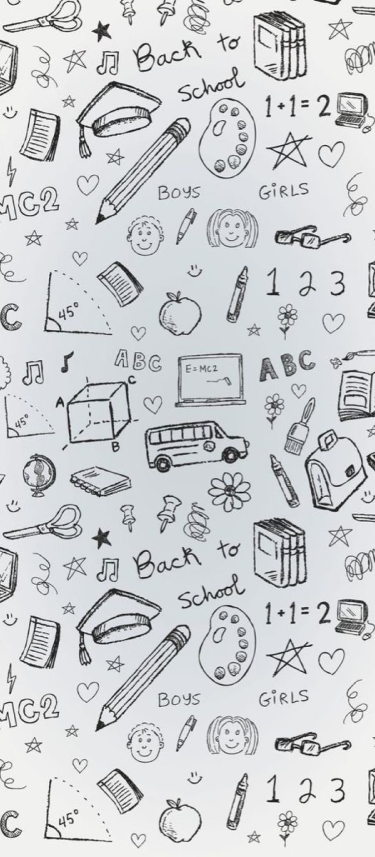 Back to
School
1+1=2
BOYS
GIRLS
MC2
45°
1 2 3
C
ABC
E=MC2
ABC
C
A
B
45°
Back to
School
1+1=2
BOYS
GIRLS
MC2
45°
1 2 3
C